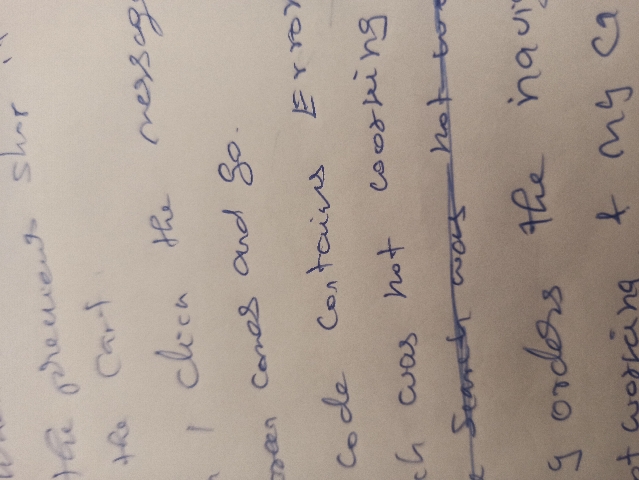 the previous shop "
the Cart
I click the messag
oreen comes and go.
code contains Error
ch was not coorking
Search was not wo
g orders the navig
ot working & my Ca